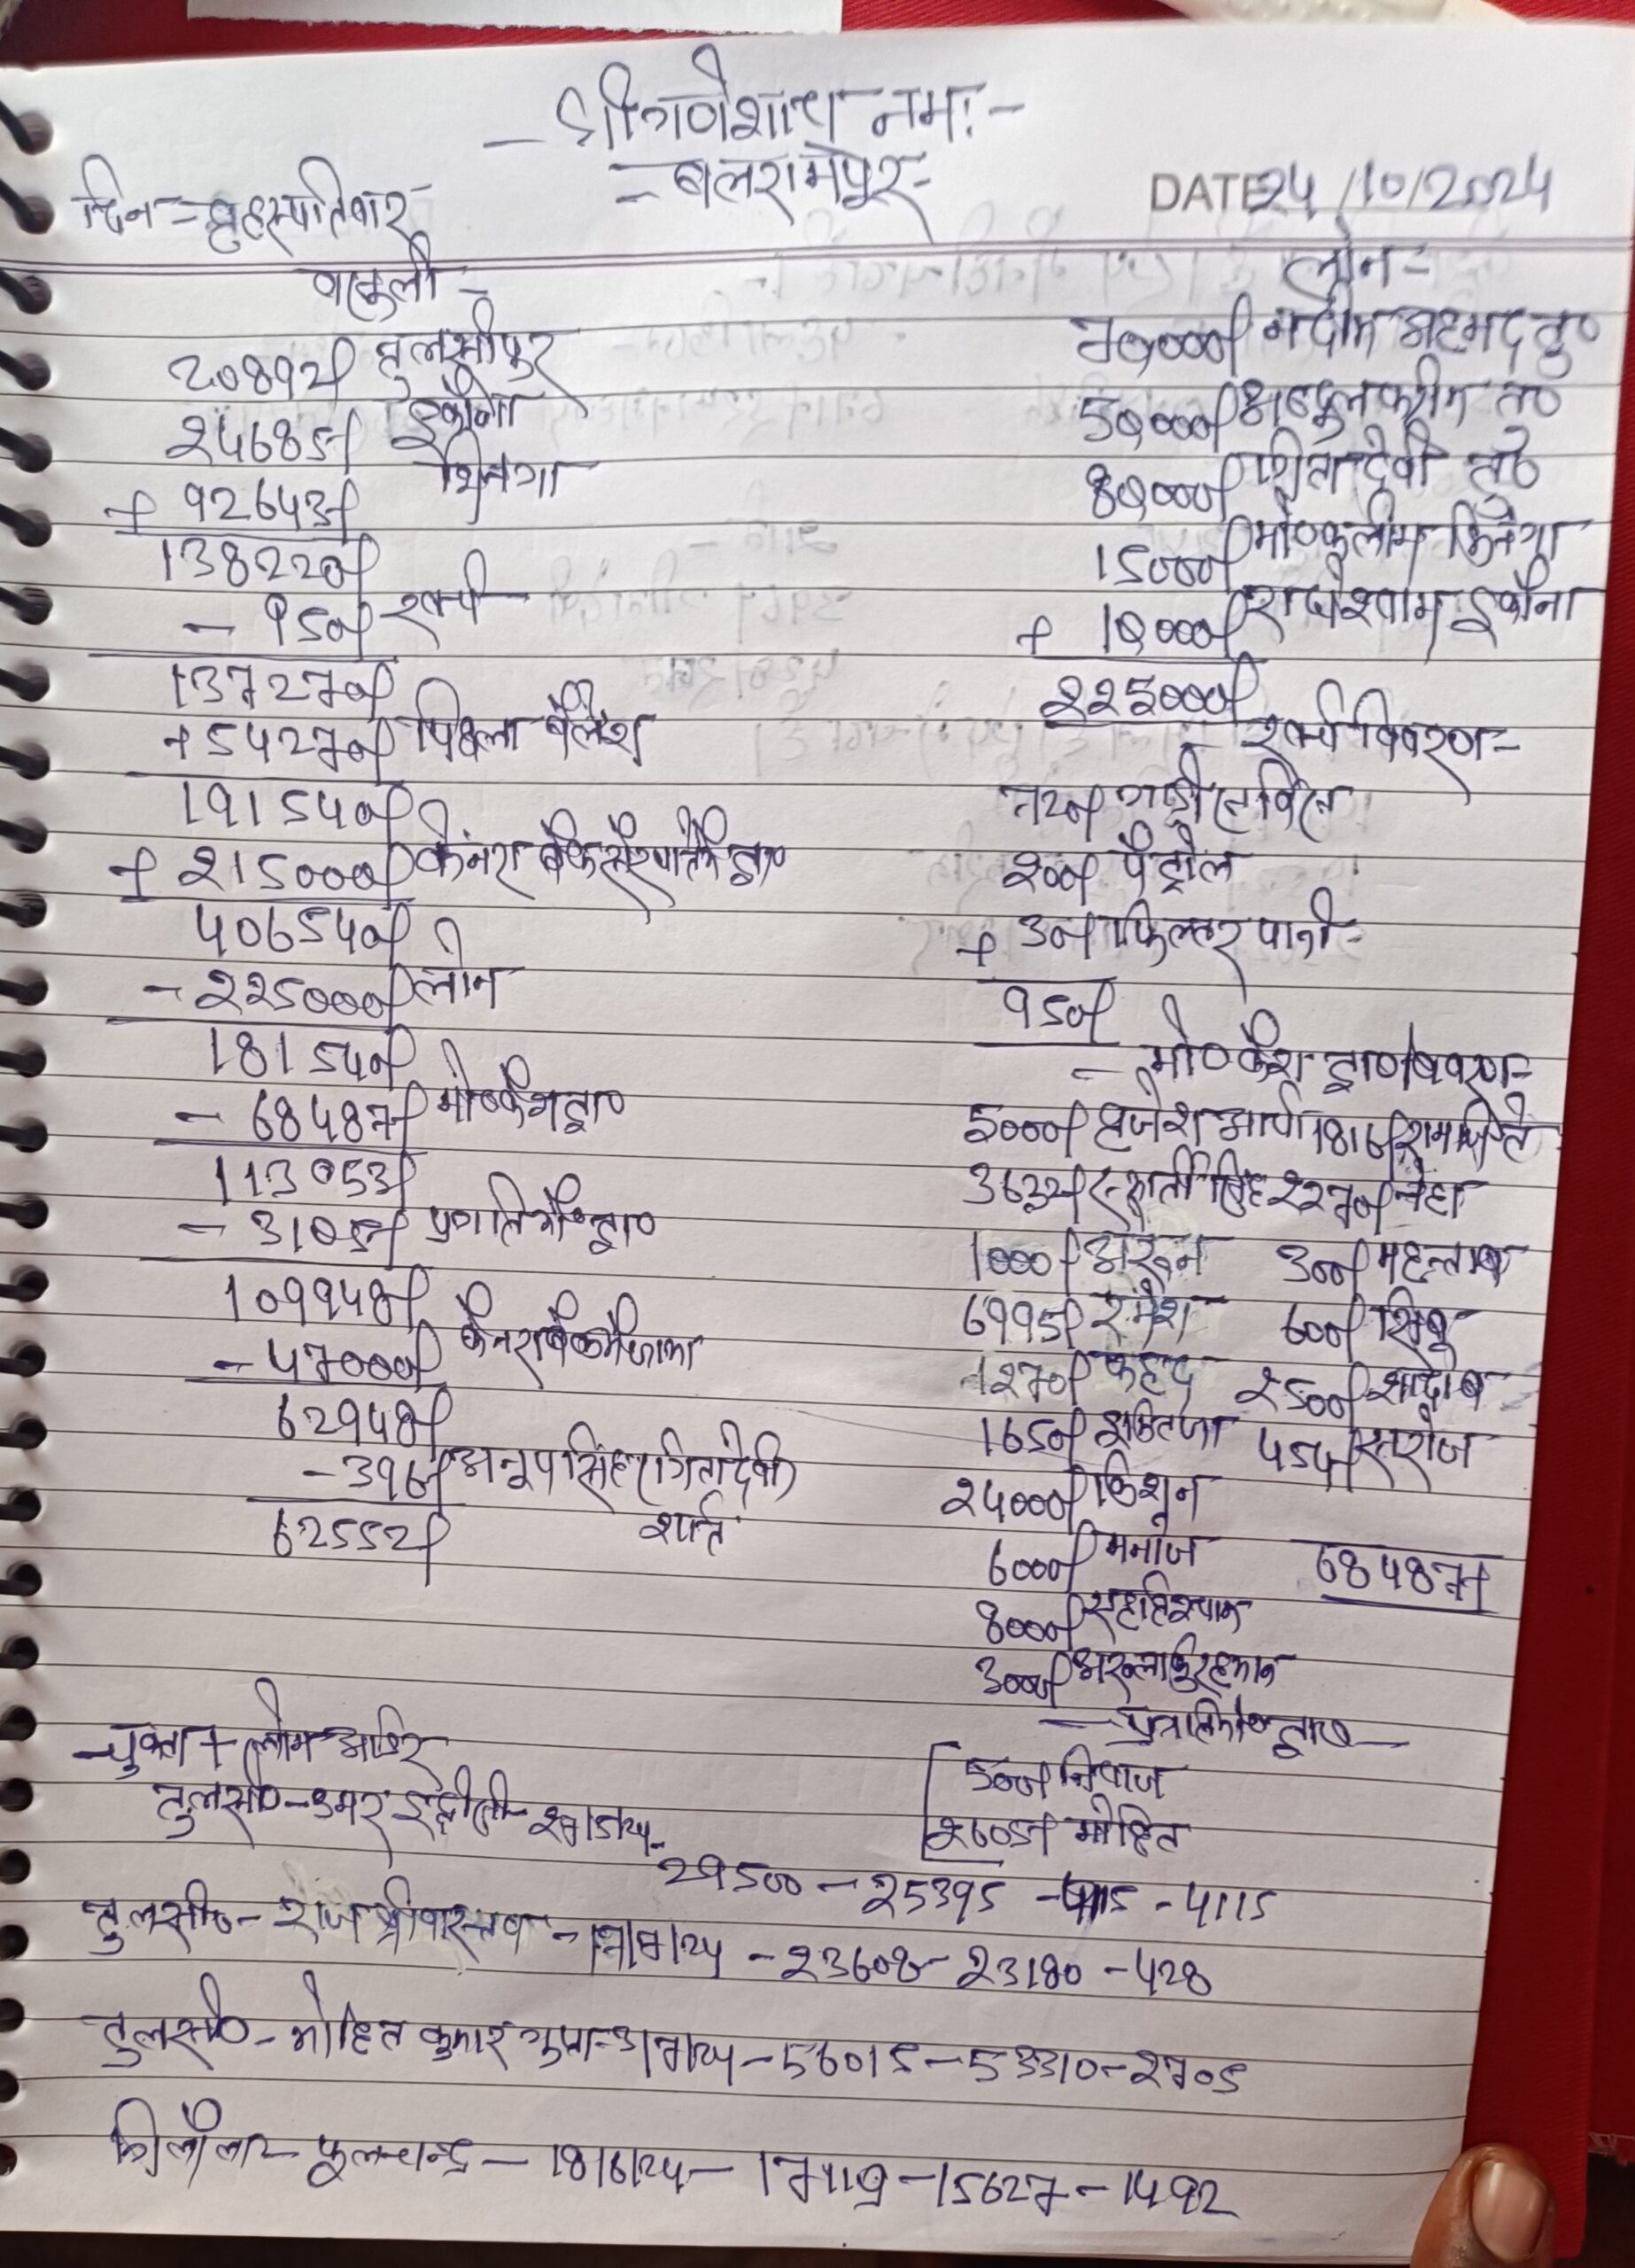 - श्री गणेशाय नमः -
= बलरामपुर =
दिन = बृहस्पतिवार
DATE 24/10/2024
वसूली -
20892/ तुलसीपुर
24685/ इकौना
+ 92643/ भिनगा
138220/
- 950/ खर्चा
137270/
+ 54270/ पिछला बैलेंश
191540/
+ 215000/ केनरा बैंक से
406540/
- 225000/ लोन
181540/
- 68487/ मो०कैश द्वा०
113053/
- 3105/ प्रगति मो० द्वा०
109948/
- 47000/ केनरा बैंक में जमा
62948/
- 396/ अनूप सिंह
62552/
लोन =
70,000/ नदीम अहमद तु०
50,000/ अब्दुल करीम तु०
80,000/ देवी तु०
15000/ मो० कलीम भिनगा
+ 10,000/ राधेश्याम इकौना
225000/
- खर्च विवरण -
720/ गाड़ी सर्विस
200/ पैट्रोल
+ 30/ फिल्टर पानी -
950/
- मो० कैश द्वा० विवरण -
5000/ बृजेश आर्या 1816/
3632/ सिंह 2270/ नेहा
1000/ 300/ महताब
6995/ रमेश 600/ सिबू
1270/ फहद 2500/ शादाब
1650/ 454/ सरोज
24000/ किशुन
6000/ मनोज 68487/
8000/
3000/
- प्रगति मो० द्वा० -
500/ नियाज
2605/ मोहित
- चुक्ता + लोन
तुलसी० - उमर
29500 - 25395 - 4115 - 4115
तुलसी० - राज श्रीवास्तव - 23608 - 23180 - 428
तुलसी० - मोहित कुमार गुप्ता - 56015 - 53310 - 2705
फूलचन्द्र - 18/6/24 - 17119 - 15627 - 1492